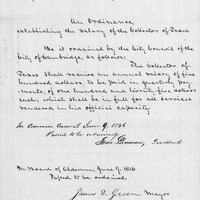 An Ordinance,
establishing the Salary of the Collector of Taxes
Be it ordained by the City Council of the
City of Cambridge, as follows:
The Collector of
Taxes shall receive an annual salary of five
hundred dollars, to be paid in quarterly pay-
ments, of one hundred and twenty five dollars
each; which shall be in full for all services
rendered in his official capacity.
In Common Council June 9, 1846
Passed to be ordained,
President
In Board of Aldermen, June 9, 1846.
Passed to be ordained.
James D. Green, Mayor